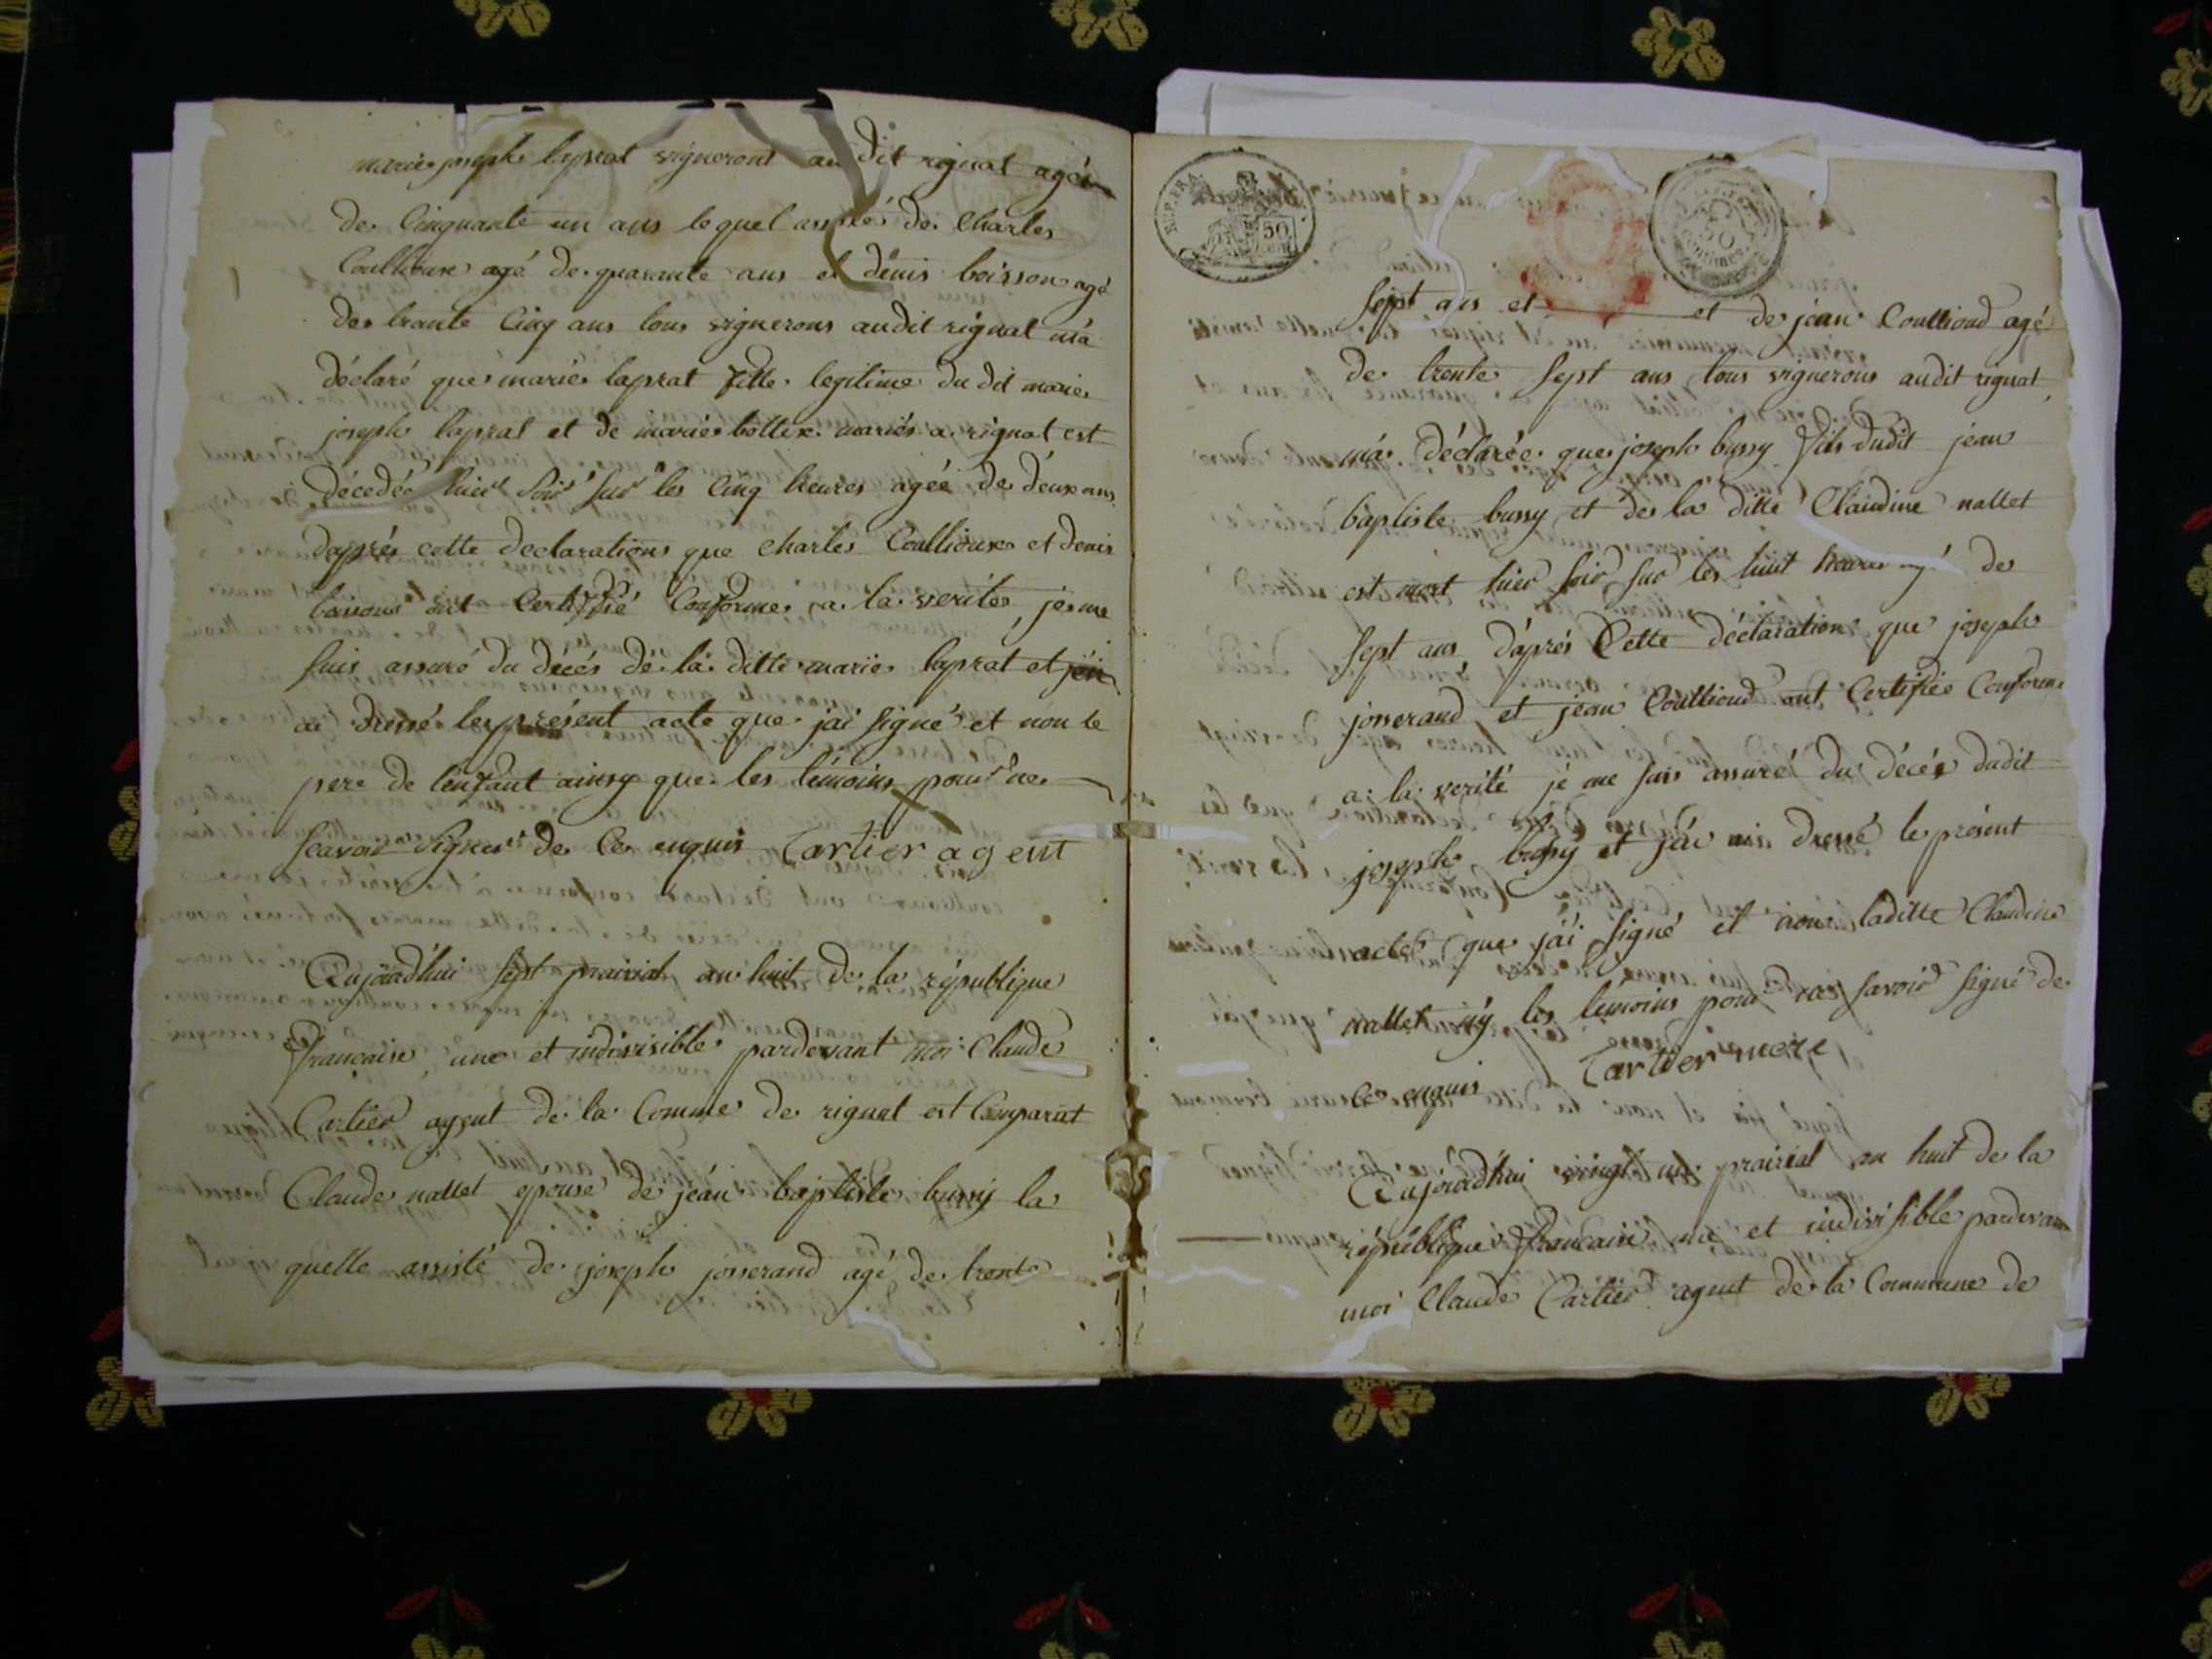 marie joseph laprat vigneront au dit rignat agée
de Cinquante un ans lequel assisté de Charles
Coullioux agé de quarante ans et denis boisson agé
de trante Cinq ans tous vignerons audit rignat m'a
déclaré que marie laprat fille legitime du dit marie
joseph laprat et de marie bottex mariés a rignat est
décedée hier soir sur les Cinq heures agée de deux ans
daprés cette declarations que charles Coullioux et denis
boisson ont Certiffié Conforme a la verité, je me
suis assuré du décés de la ditte marie laprat et j'en
ai dressé le présent acte que jai signé et non le
pere de lenfant ainsy que les témoins pour ne
scavoir signer de ce enquis Cartier agent
Aujourdhui sept prairial an huit de la république
francaise une et indivisible pardevant moi Claude
Cartier agent de la Comme de rignat est Comparut
Claude nallet epouse de jean baptiste bussy la
quelle assisté de joseph josserand agé de trente
REP. FRA.
50
cent
50
centimes
sept ans et et de jean Coullioud agé
de trente sept ans tous vignerons audit rignat
m'a déclarée que joseph bussy fils dudit jean
baptiste bussy et de la ditte Claudine nallet
est mort hier soir sur les huit heures agé de
sept ans d'aprés Cette déclaration que joseph
josserand et jean Coullioud ont Certifié Conforme
a la verité je me suis assuré du décés dudit
joseph bussy et j'ai dressé le présent
acte que j'ai signé et non laditte Claudine
nallet ny les témoins pour ne savoir signé de
ce enquis Cartier
Aujourdhui vingt un prairial an huit de la
république francaise une et indivisible pardevant
moi Claude Cartier agent de la Commune de